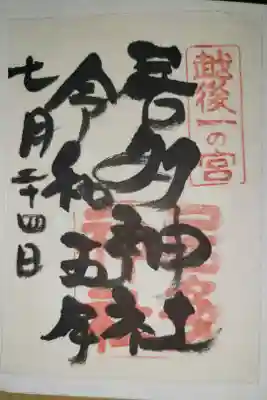 越後一の宮
居多神社
令和五年
七月二十四日